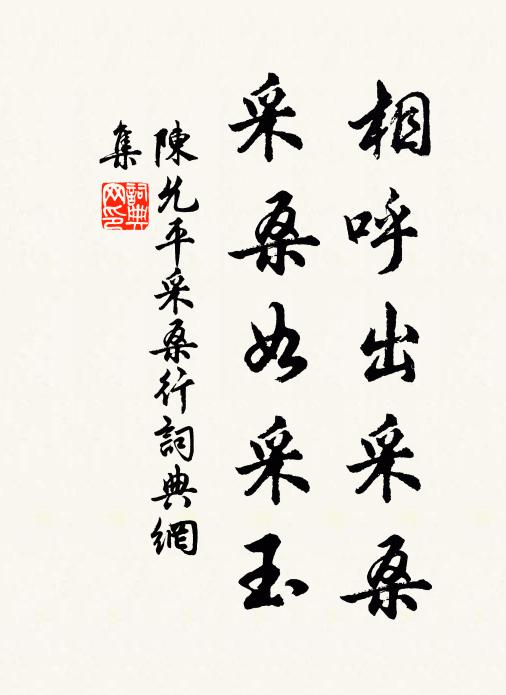 相呼出采桑
采桑如采玉
陳允平采桑行詞典網
集
詞典
网印